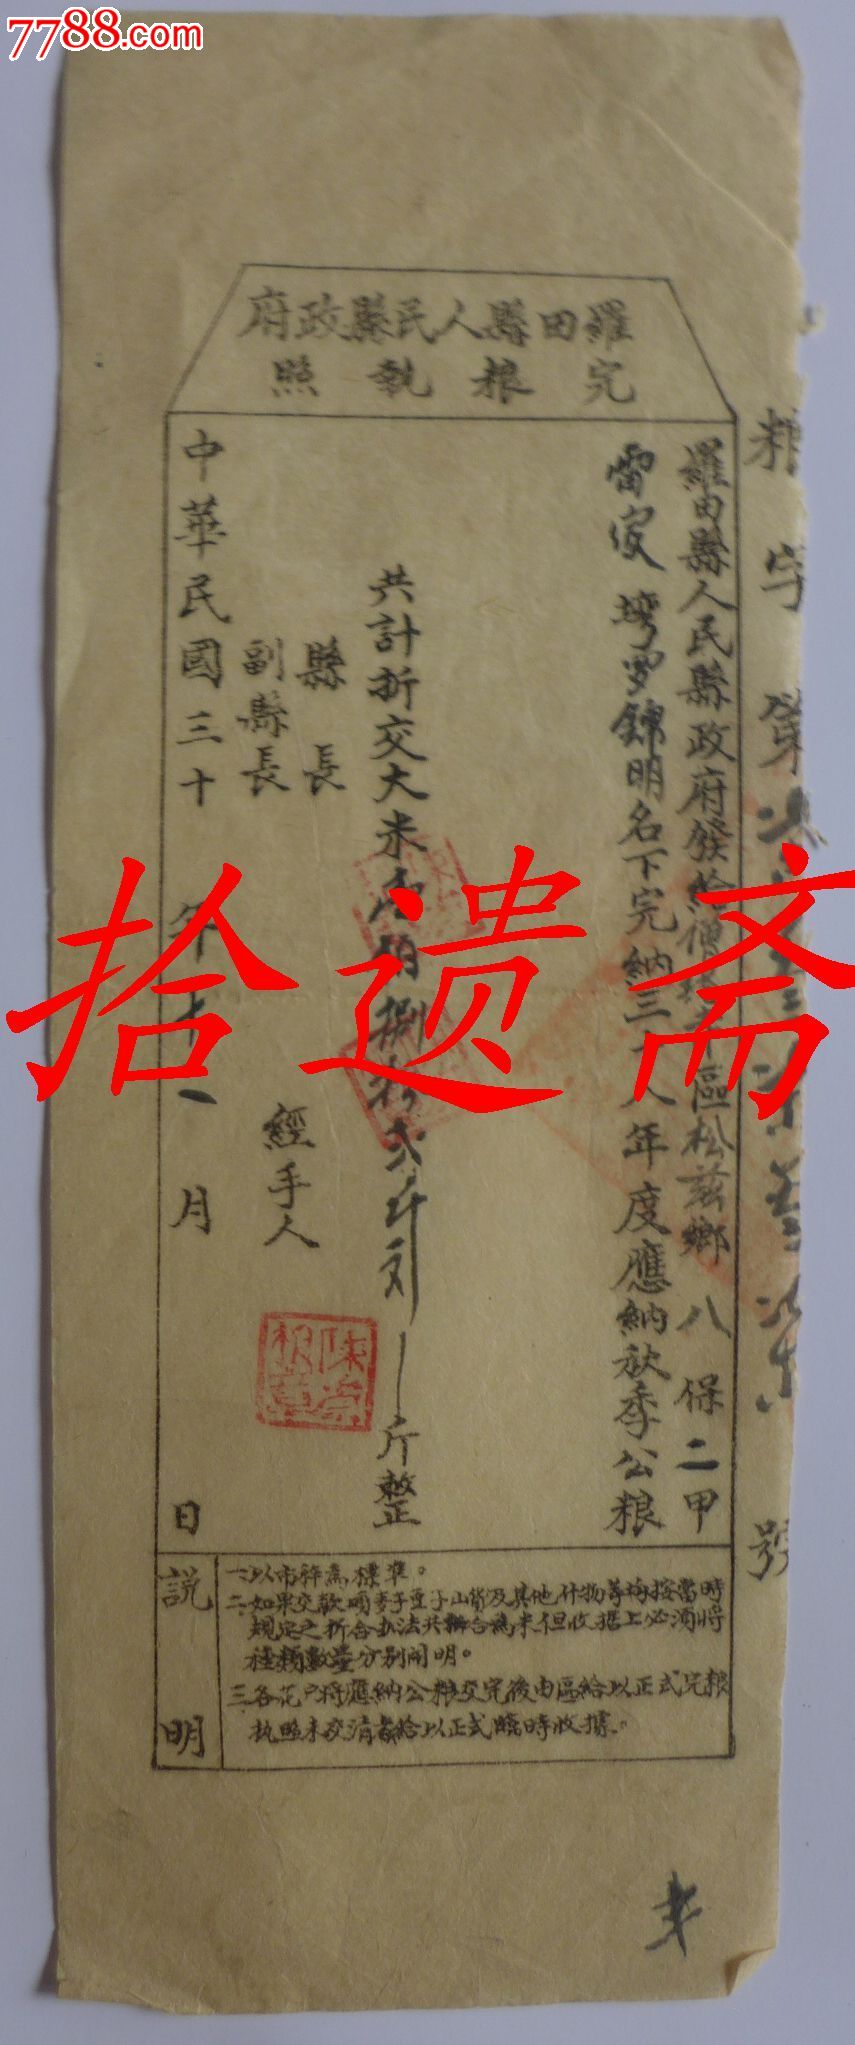 7788.com
羅田縣人民縣政府
完粮執照
粮字第 號
羅田縣人民縣政府發給僧塔寺區松兹鄉八保二甲
雷家塆罗錦明名下完納三十八年度應納秋季公粮
共計折交大米壹佰捌拾弍斤 斤整
縣長
副縣長
經手人
中華民國三十 年十一月 日
說明
一、以市秤為標準。
二、如果交款項麥子豆子山貨及其他什物等均按當時
規定之折合办法共折合為米但收据上必須將
種類數量分別開明。
三、各花户將應納公粮交完後由區給以正式完粮
执照未交清者給以正式臨時收據。
拾遗斋